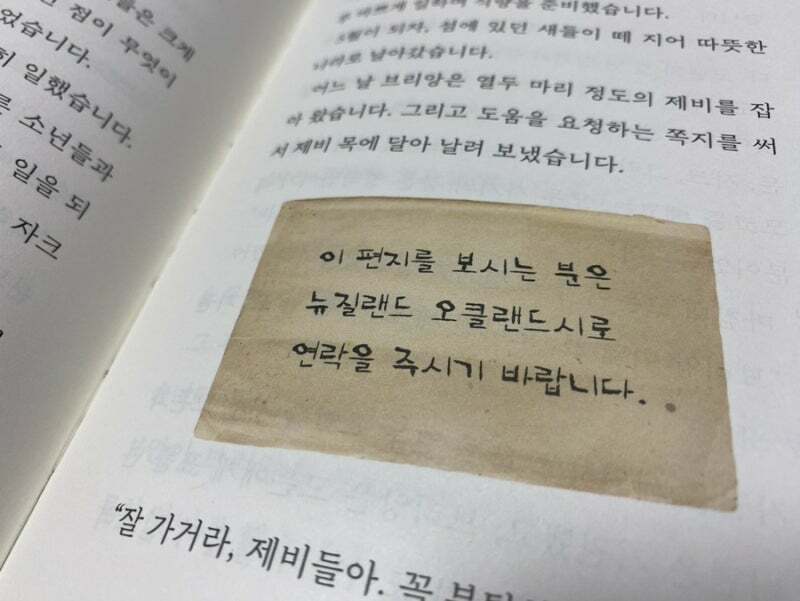 들은 크게
점이 무엇이
었습니다.
히 일했습니다.
른 소년들과
일을 되
자크
바쁘게 일하며 식량을 준비했습니다.
5월이 되자, 섬에 있던 새들이 떼 지어 따뜻한
나라로 날아갔습니다.
어느 날 브리앙은 열두 마리 정도의 제비를 잡
아 왔습니다. 그리고 도움을 요청하는 쪽지를 써
서 제비 목에 달아 날려 보냈습니다.
이 편지를 보시는 분은
뉴질랜드 오클랜드시로
연락을 주시기 바랍니다.
“잘 가거라, 제비들아. 꼭